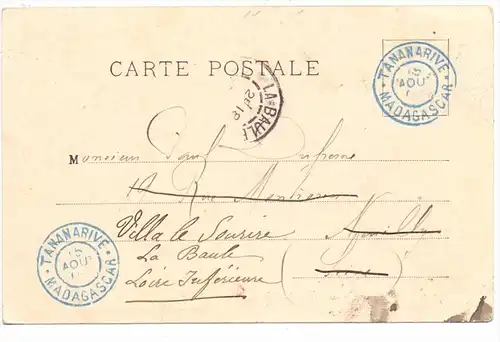 CARTE POSTALE
TANANARIVE
15
AOUT
MADAGASCAR
LA BAULE
Monsieur Paul Dufresne
Rue
Villa le Sourire Neuilly
La Baule
Loire Inférieure (Seine)
TANANARIVE
15
AOUT
MADAGASCAR